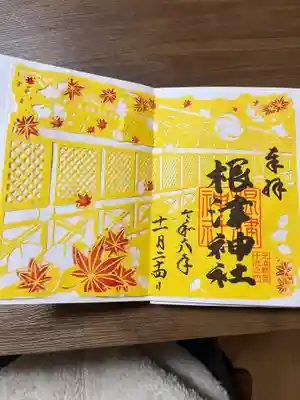 奉拝
根津神社
令和六年
十一月二十四日